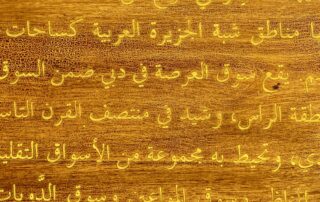 ـا مناطق شبه الجزيرة العربية كساحات
ـم. يقع سوق العرصة في دبي ضمن السوق
ـطقة الراس، وشيد في منتصف القرن التاسـ
ـدي، وتحيط به مجموعة من الأسواق التقليـ
وسوق الدويات